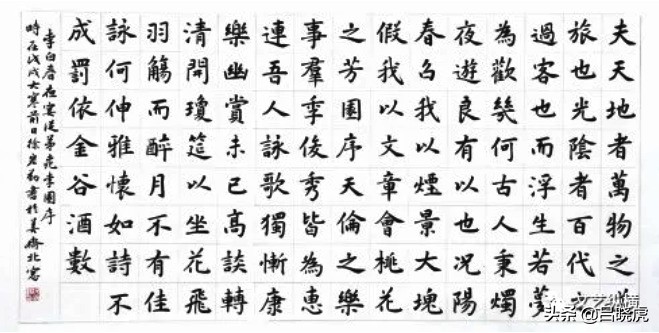 夫天地者萬物之
旅也光陰者百代
過客也而浮生若夢
為歡幾何古人秉燭
夜遊良有以也况陽
春召我以煙景大塊
假我以文章會桃花
之芳園序天倫之樂
事羣季俊秀皆為惠
連吾人詠歌獨慚康
樂幽賞未已高談轉
清開瓊筵以坐花飛
羽觴而醉月不有佳
詠何伸雅懷如詩不
成罰依金谷酒數
李白春夜宴從弟桃李園序
時在戊戌大寒前日徐書於齋北窗
文艺纵横
头条 @吕晓虎